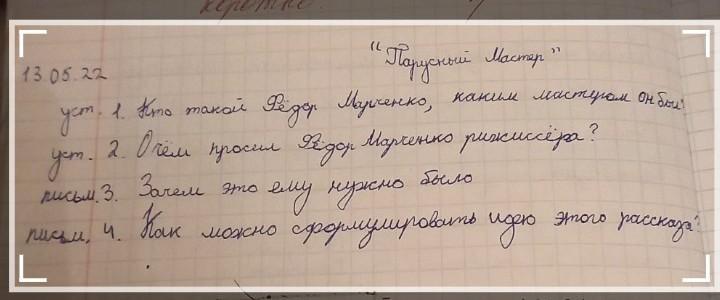 коротко.
"Парусный Мастер"
13.05.22
уст. 1. Кто такой Фёдор Марченко, каким мастером он был?
уст. 2. О чём просил Фёдор Марченко рижиссёра?
письм. 3. Зачем это ему нужно было
письм. 4. Как можно сформулировать идею этого рассказа?